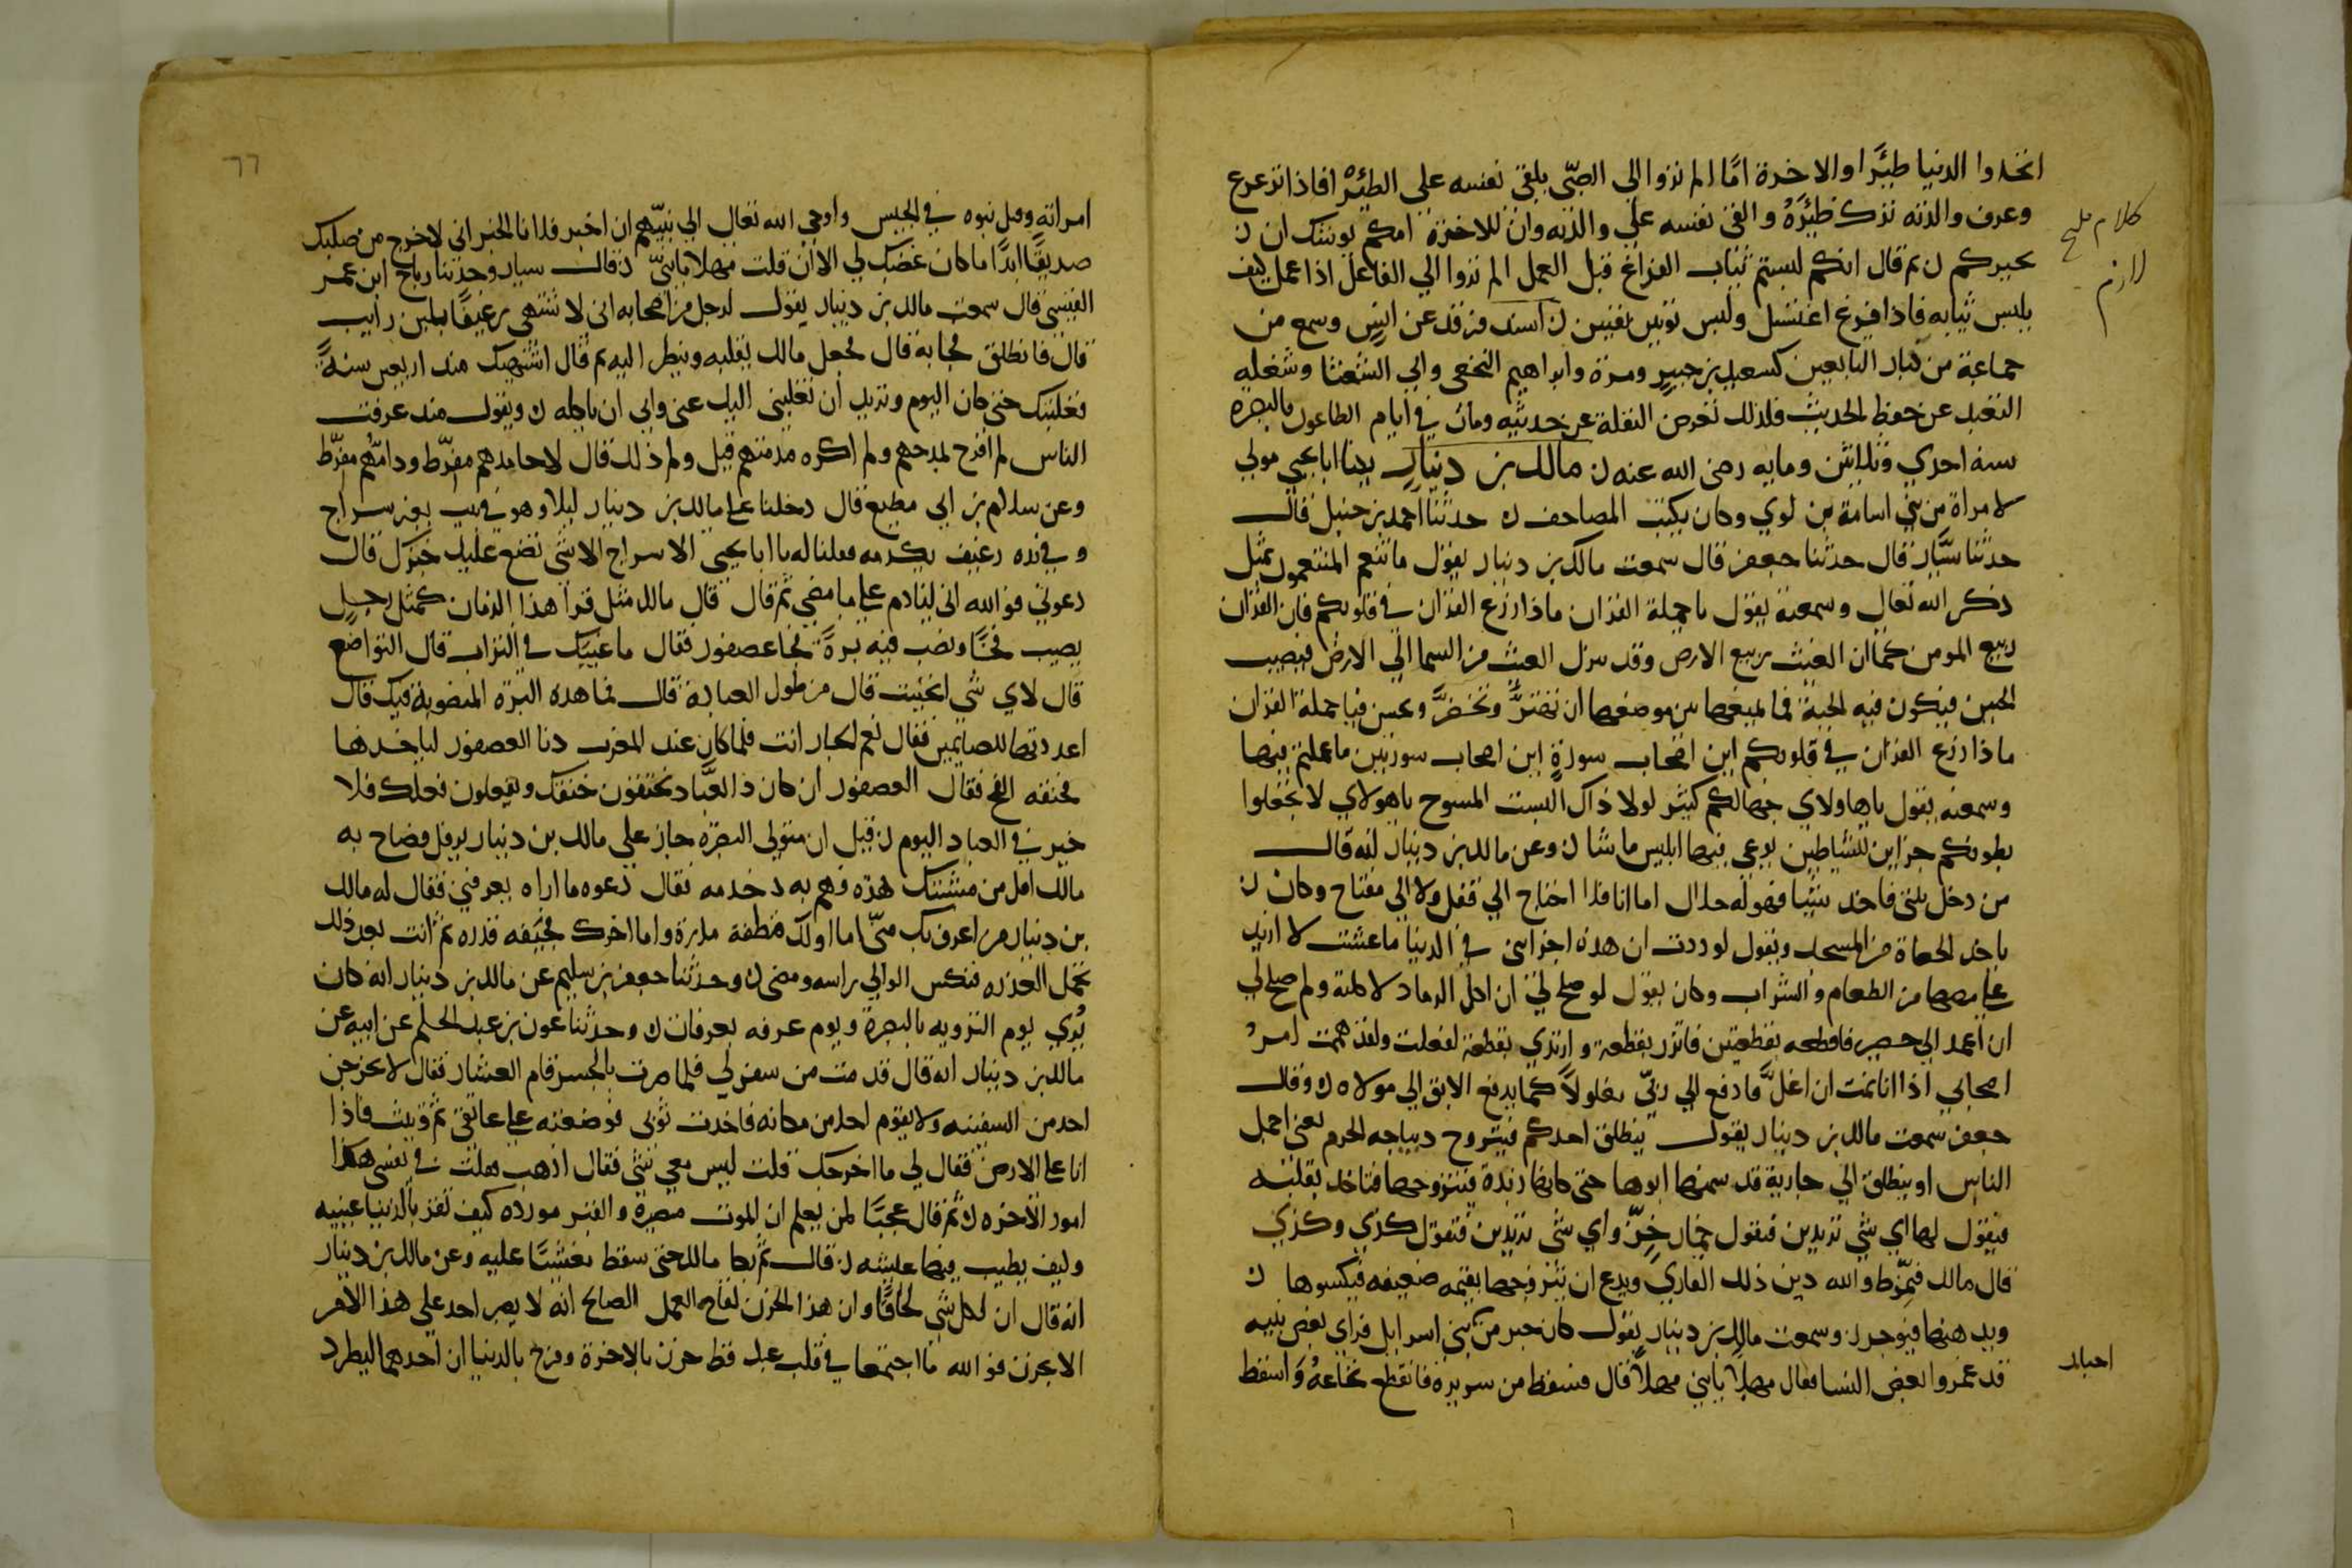 اتخذوا الدنيا ظئرا والاخرة امّا الم تروا الي الصبّي يلقي نفسه علي الظئر افاذا ترعرع
وعرف والدته ترك ظئره والقي نفسه علي والدته وان للاخرة امكم توشك ان ن
كلام مليح
لازم
تجيركم ن ثم قال انكم لبستم ثياب الفراغ قبل العمل الم تروا الي الفاعل اذا عمل كيف
يلبس ثيابه فاذا فرغ اغتسل ولبس ثوبين نقيين ن اسند فرقد عن انس وسمع من
جماعة من كبار التابعين كسعيد بن جبير ومرة وابراهيم النخعي وابي الشعثا وشغله
التعبد عن حفظ الحديث فلذلك تعرض النقلة عن حديثه ومات في ايام الطاعون بالبصرة
سنة احدي وثلاثين وماية رضي الله عنه ن مالك بن دينار يكنا ابا يحيي مولي
لامراة من بني اسامة بن لوي وكان يكتب المصاحف ن حدثنا احمد بن حنبل قال
حدثنا سيّار قال حدثنا جعفر قال سمعت مالك بن دينار يقول ما تنعم المتنعمون بمثل
ذكر الله تعالي وسمعته يقول يا حملة القران ماذا زرع القران في قلوبكم فان القران
ربيع المومن كما ان الغيث ربيع الارض وقد ينزل الغيث من السما الي الارض فيصيب
الحش فيكون فيه الحبة فما يمنعها نتن موضعها ان تهتزّ وتخضرّ وتحسن فيا حملة القران
ماذا زرع القران في قلوبكم اين اصحاب سورة اين اصحاب سورتين ما عملتم فيها
وسمعته يقول يا هاولاي جهالكم كثير لولا ذاك للبست المسوح يا هولاي لا تجعلوا
بطونكم جراين للشياطين يوعي فيها ابليس ما شا ن وعن مالك بن دينار انه قال
من دخل بيتي فاخذ شيا فهو له حلال اما انا فلا احتاج الي قفل ولا الي مفتاح وكان ن
ياخذ الحصاة من المسجد ويقول لوددت ان هذه اجزاتني في الدنيا ما عشت لا ازيد
علي مصها من الطعام والشراب وكان يقول لو صلح لي ان اكل الرماد لاكلته ولو صلح لي
ان اعمد الي حصير فاقطعه بقطعتين فاتزر بقطعة وارتدي بقطعة لفعلت ولقد هممت امر
اصحابي اذا انا مت ان اغلّ فادفع الي ربيّ مغلولا كما يدفع الابق الي مولاه ن وقال
جعفر سمعت مالك بن دينار يقول ينطلق احدكم فيتزوج ديباجه الحرم يعني اجمل
الناس او ينطلق الي جارية قد سمنها ابوها حتي كانها زبدة فيتزوجها فتاخذ بقلبه
فيقول لها اي شي تريدين فتقول خمار خزّ واي شي تريدين فتقول كذي وكذي
قال مالك فتمّرط والله دين ذلك القاري ويدع ان يتزوجها يتيمه ضعيفه فيكسوها ن
ويدهنها فيوجر ن وسمعت مالك بن دينار يقول كان حبر من بني اسرايل فراي بعض بنيه
احبار
قد غمزوا بعض النسا فقال مهلا يا بني مهلا قال فسقط من سريره فانقطع نخاعه واسقط
٦٦
امراته وقتل بنوه في الجيش واوحي الله تعالي الي نبيّهم ان اخبر فلانا الخبر اني لا اخرج من صلبك
صديقا ابدا ما كان غضبك لي الا ان قلت مهلا يا بنيّ ن قال سيار وحدثنا رباح ابن عمر
القيسي قال سمعت مالك بن دينار يقول لرجل من اصحابه اني لا شتهي رغيفا بلبن رايب
قال فانطلق فجا به قال فجعل مالك يقلبه وينظر اليه ثم قال اشتهيتك منذ اربعين سنة
فغلبتك حتي كان اليوم وتريد ان تغلبني اليك عني وابي ان ياكله ن ويقول منذ عرفت
الناس لم افرح لمدحهم ولم اكره مذمتهم قيل ولم ذلك قال لا حامدهم مفرّط وذامّهم مفرّط
وعن سلام بن ابي مطيع قال دخلنا علي مالك بن دينار ليلا وهو في بيت بغير سراج
وفي يده رغيف يكدمه فقلنا له يا ابا يحيي الا سراج الا شي تضع عليه خبزك قال
دعوني فوالله اني لنادم علي ما مضي ثم قال قال مالك مثل قرا هذا الزمان كمثل رجل
نصب فخّا ونصب فيه برة فجا عصفور فقال ما غيبك في التراب قال التواضع
قال لاي شي انحنيت قال من طول العبادة قال فما هذه البرة المنصوبة فيك قال
اعددتها للصايمين فقال نعم الجار انت فلما كان عند المغرب دنا العصفور لياخذها
فخنقه الفخ فقال العصفور ان كان ذا العبّاد يخنقون خنقك ويفعلون فعلك فلا
خير في العباد اليوم ن قيل ان متولي البصرة جاز علي مالك بن دينار يرفل فصاح به
مالك اقل من مشيتك هذه فهم به خدمه فقال دعوه ما اراه يعرفني فقال له مالك
بن دينار من اعرف بك منّي اما اولك فنطفة مذرة واما اخرك فجيفه قذره ثم انت بعد ذلك
تحمل العذره فنكس الوالي راسه ومضي ن وحدثنا جعفر بن سليم عن مالك بن دينار انه كان
يُري يوم الترويه بالبصرة ويوم عرفه بعرفات ن وحدثنا عون بن عبد الحكم عن ابيه عن
مالك بن دينار انه قال قدمت من سفر لي فلما صرت بالجسر قام العشار فقال لا يخرجن
احد من السفينه ولا يقوم احد من مكانه فاخذت ثوبي فوضعته علي عاتقي ثم وثبت فاذا
انا علي الارض فقال لي ما اخرجك قلت ليس معي شي فقال اذهب فقلت في نفسي هكذا
امور الاخره ن ثم قال عجبا لمن يعلم ان الموت مصيره والقبر مورده كيف تقر بالدنيا عينيه
وكيف يطيب فيها عيشه ن قال ثم بكا مالك حتي سقط مغشيا عليه وعن مالك بن دينار
انه قال ان لكل شي لقاحا وان هذا الحزن لقاح العمل الصالح انه لا يصبر احد علي هذا الامر
الا بحزن فو الله ما اجتمعا في قلب عبد قط حزن بالاخرة وفرح بالدنيا ان احدهما ليطرد